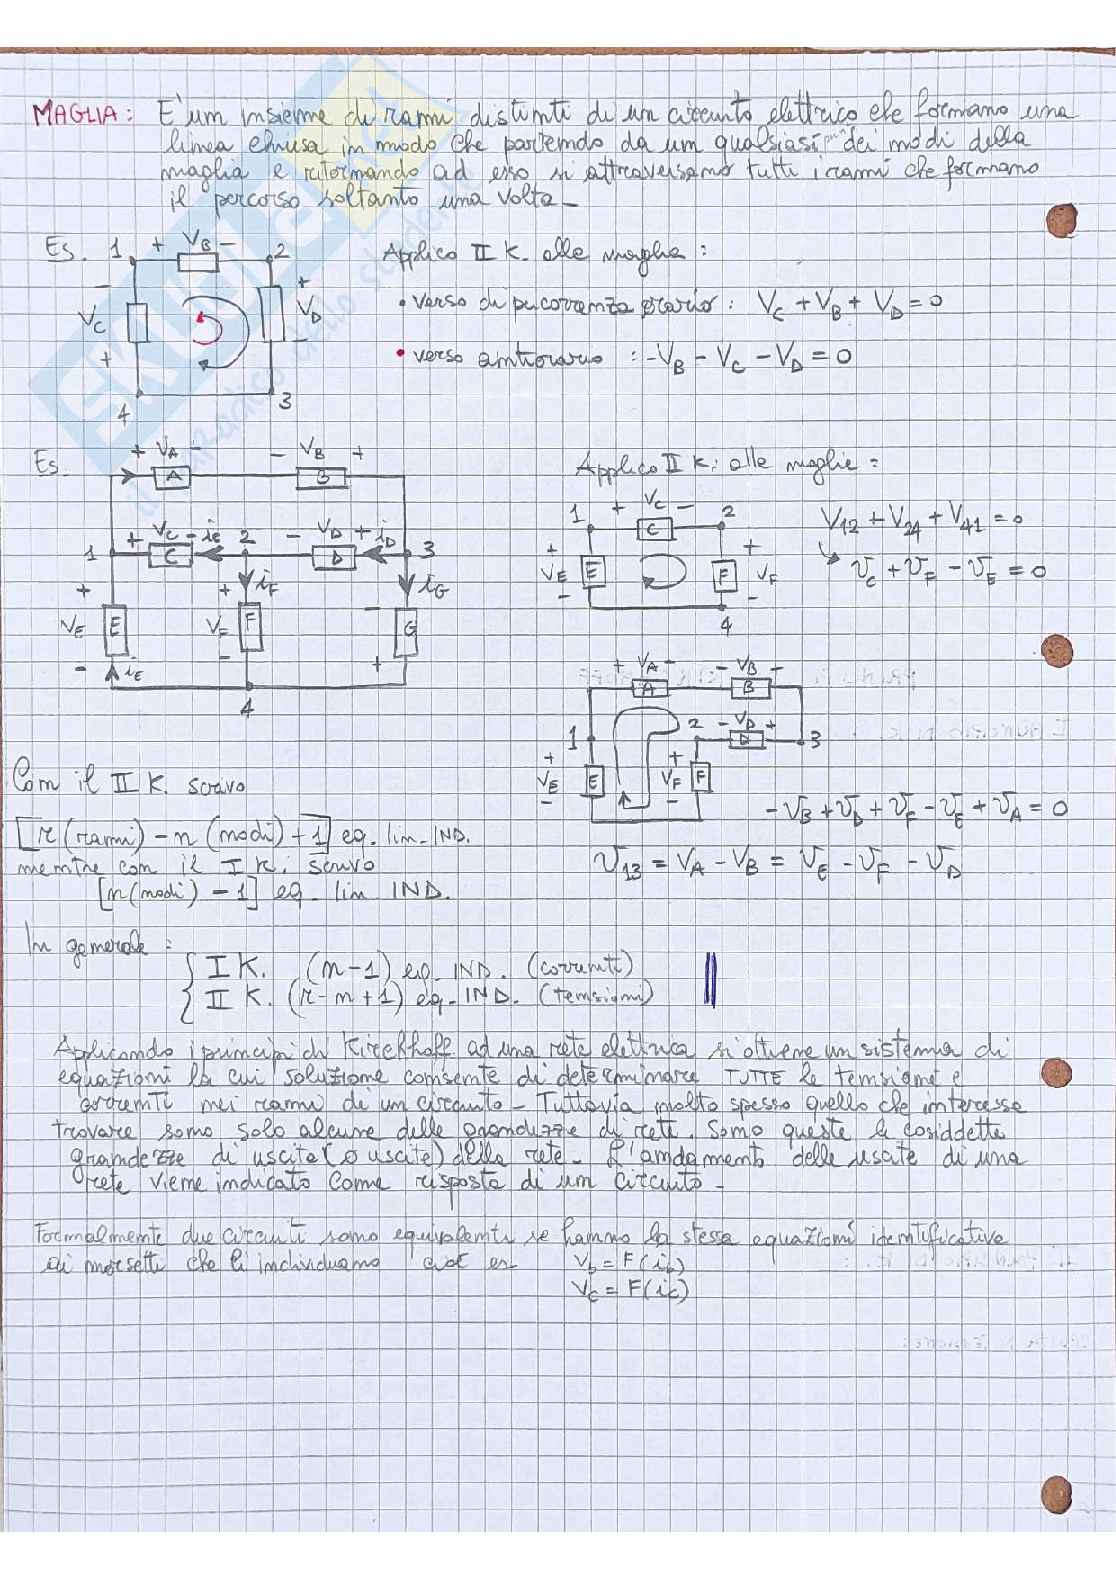 MAGLIA: E' un insieme di rami distinti di un circuito elettrico che formano una
linea chiusa in modo che partendo da un qualsiasi dei nodi della
maglia e ritornando ad esso si attraversano tutti i rami che formano
il percorso soltanto una volta -
Es. 1 + VB - 2
Applico II K. alle maglie:
- VC +
+ VD -
4 3
• verso di percorrenza orario: VC + VB + VD = 0
• verso antiorario: -VB - VC - VD = 0
Es. + VA - - VB +
A B
1 + VC - iC 2 - VD + iD 3
C D
iF iG
+ VE - E + VF - F - G +
iE
4
Applico II K. alle maglie:
1 + VC - 2
C
+ VE - E F + VF -
4
V12 + V24 + V41 = 0
VC + VF - VE = 0
+ VA - - VB -
A B
1 2 - VD + 3
D
+ VE - E + VF - F
-VB + VD + VF - VE + VA = 0
V13 = VA - VB = VE - VF - VD
Con il II K. scrivo
[r (rami) - n (nodi) + 1] eq. lin. IND.
mentre con il I K. scrivo
[n (nodi) - 1] eq. lin IND.
In generale:
I K. (n-1) eq. IND. (correnti)
II K. (r-n+1) eq. IND. (tensioni)
Applicando i principi di Kirckhoff ad una rete elettrica si ottiene un sistema di
equazioni la cui soluzione consente di determinare TUTTE le tensioni e
correnti nei rami di un circuito - Tuttavia molto spesso quello che interessa
trovare sono solo alcune delle grandezze di rete. Sono queste le cosiddette
grandezze di uscita (o uscite) della rete - L'andamento delle uscite di una
rete viene indicato come risposta di un circuito -
Formalmente due circuiti sono equivalenti se hanno la stessa equazioni identificative
ai morsetti che li individuano cioè es vb = F(ib)
vc = F(ic)